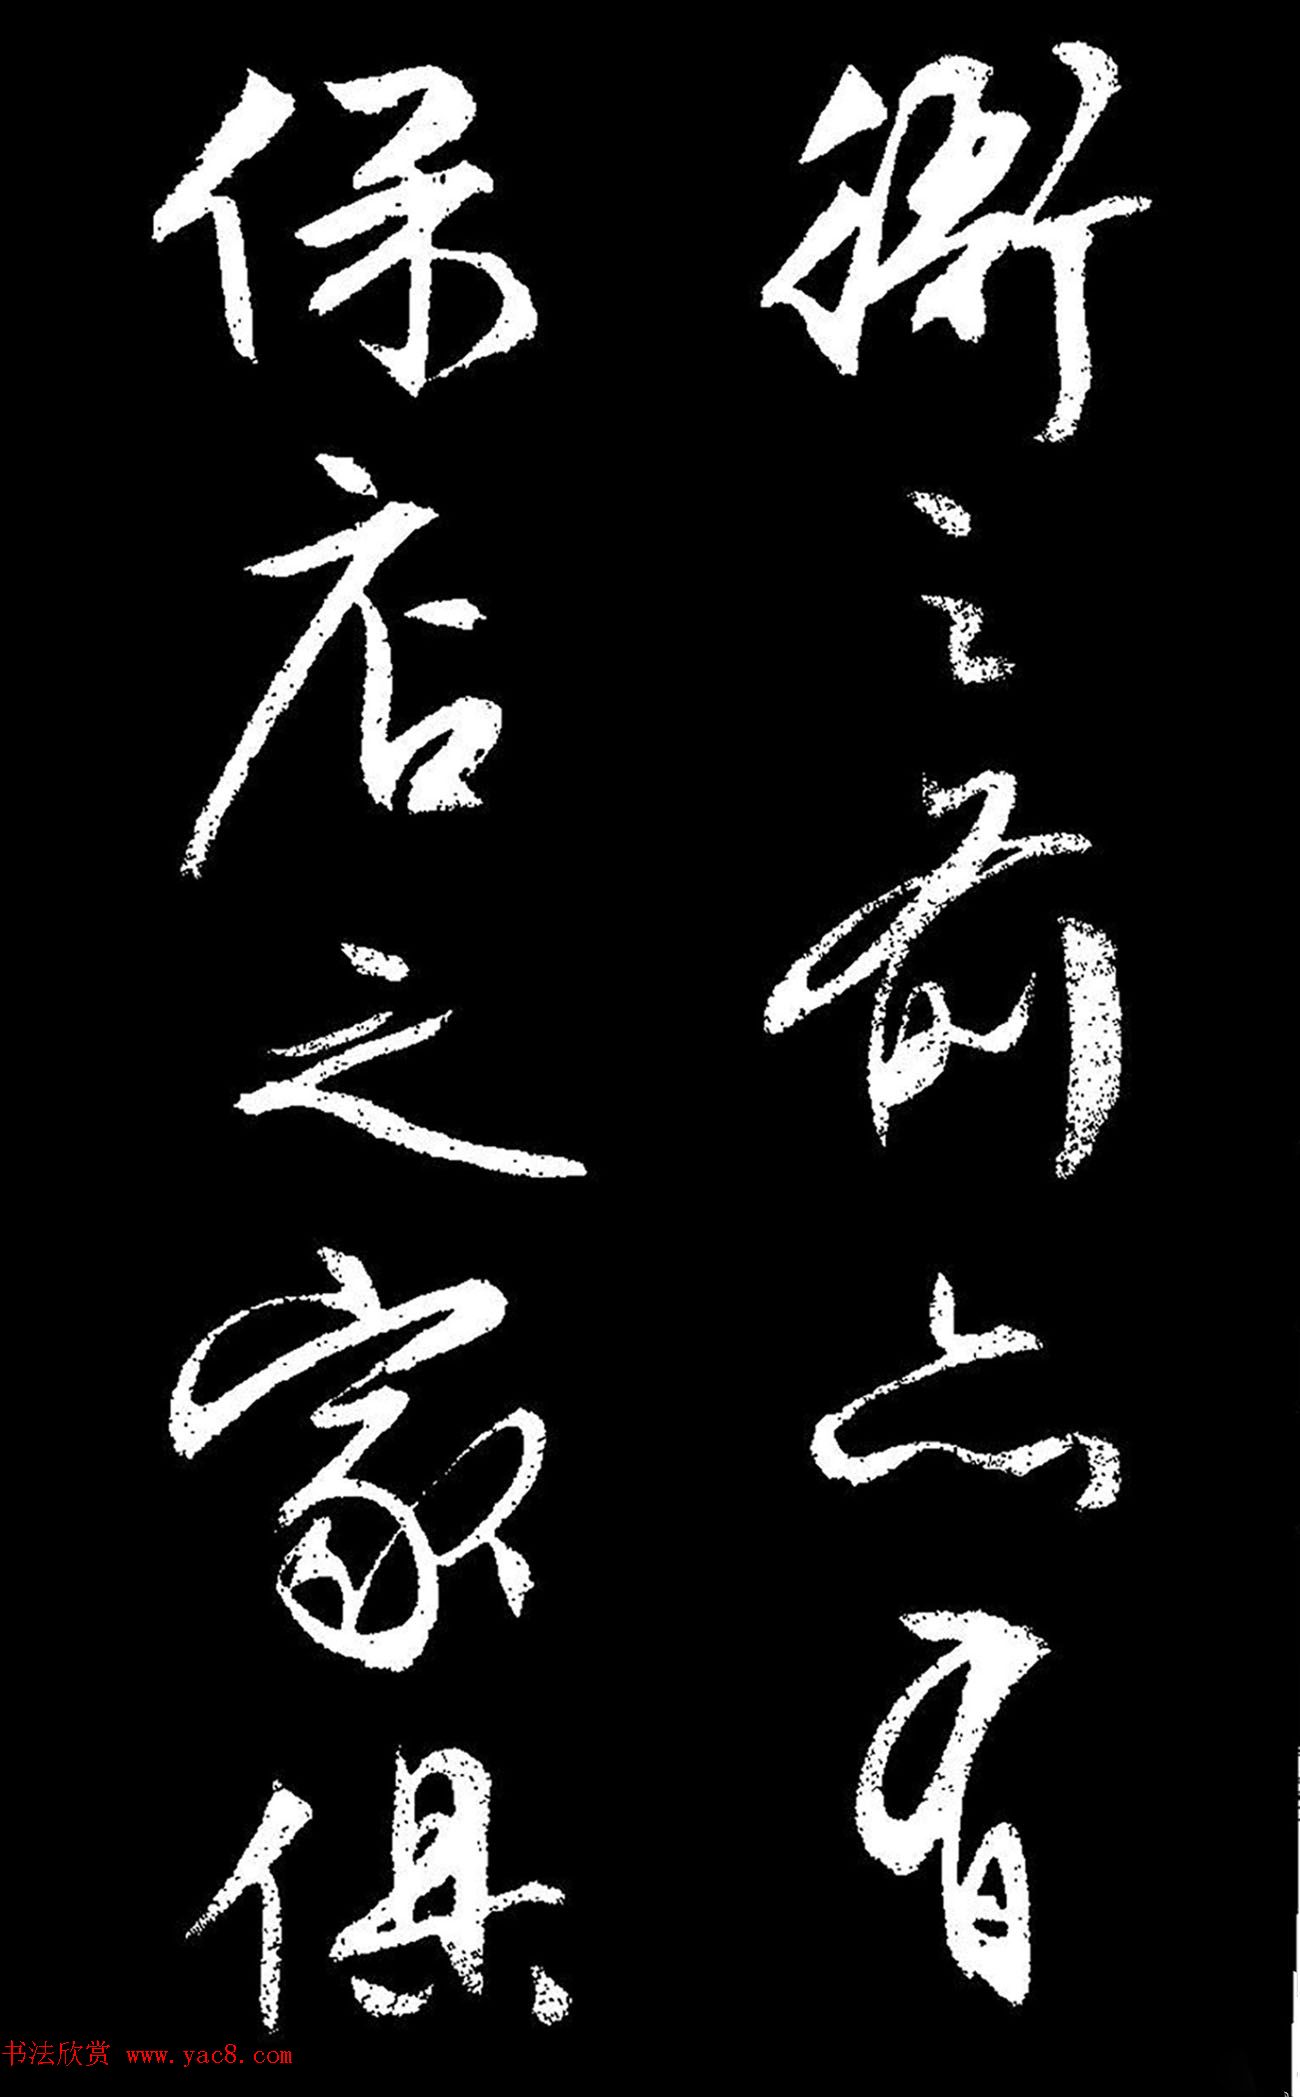 衙之前亦有
保店之家俱
书法欣赏 www.yac8.com